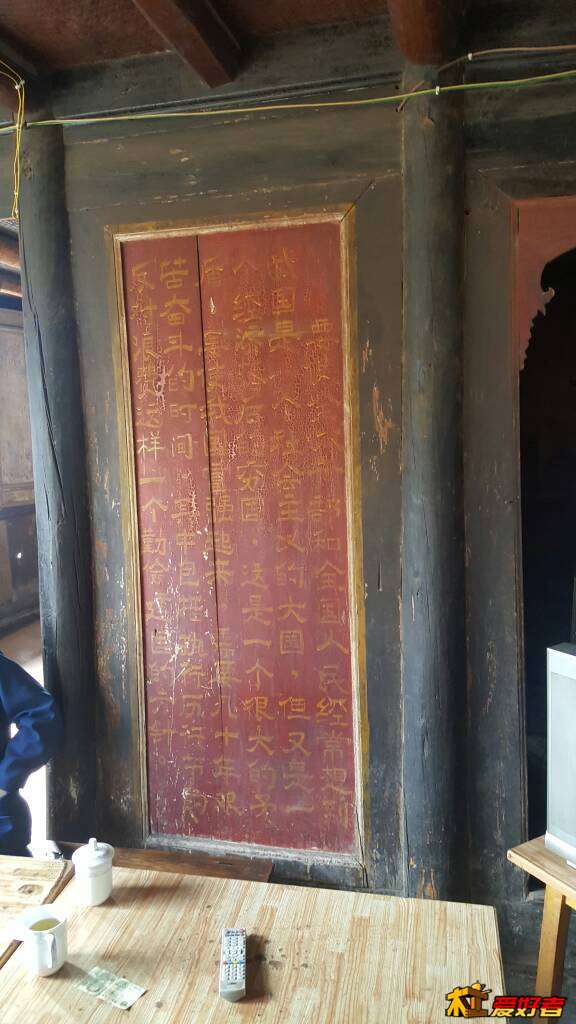 要使全体干部和全国人民经常想到
我国是一个社会主义的大国，但又是一
个经济落后的穷国，这是一个很大的矛
盾。要使我国富强起来，需要几十年艰
苦奋斗的时间，其中包括执行厉行节约
反对浪费这样一个勤俭建国的方针。
爱好者